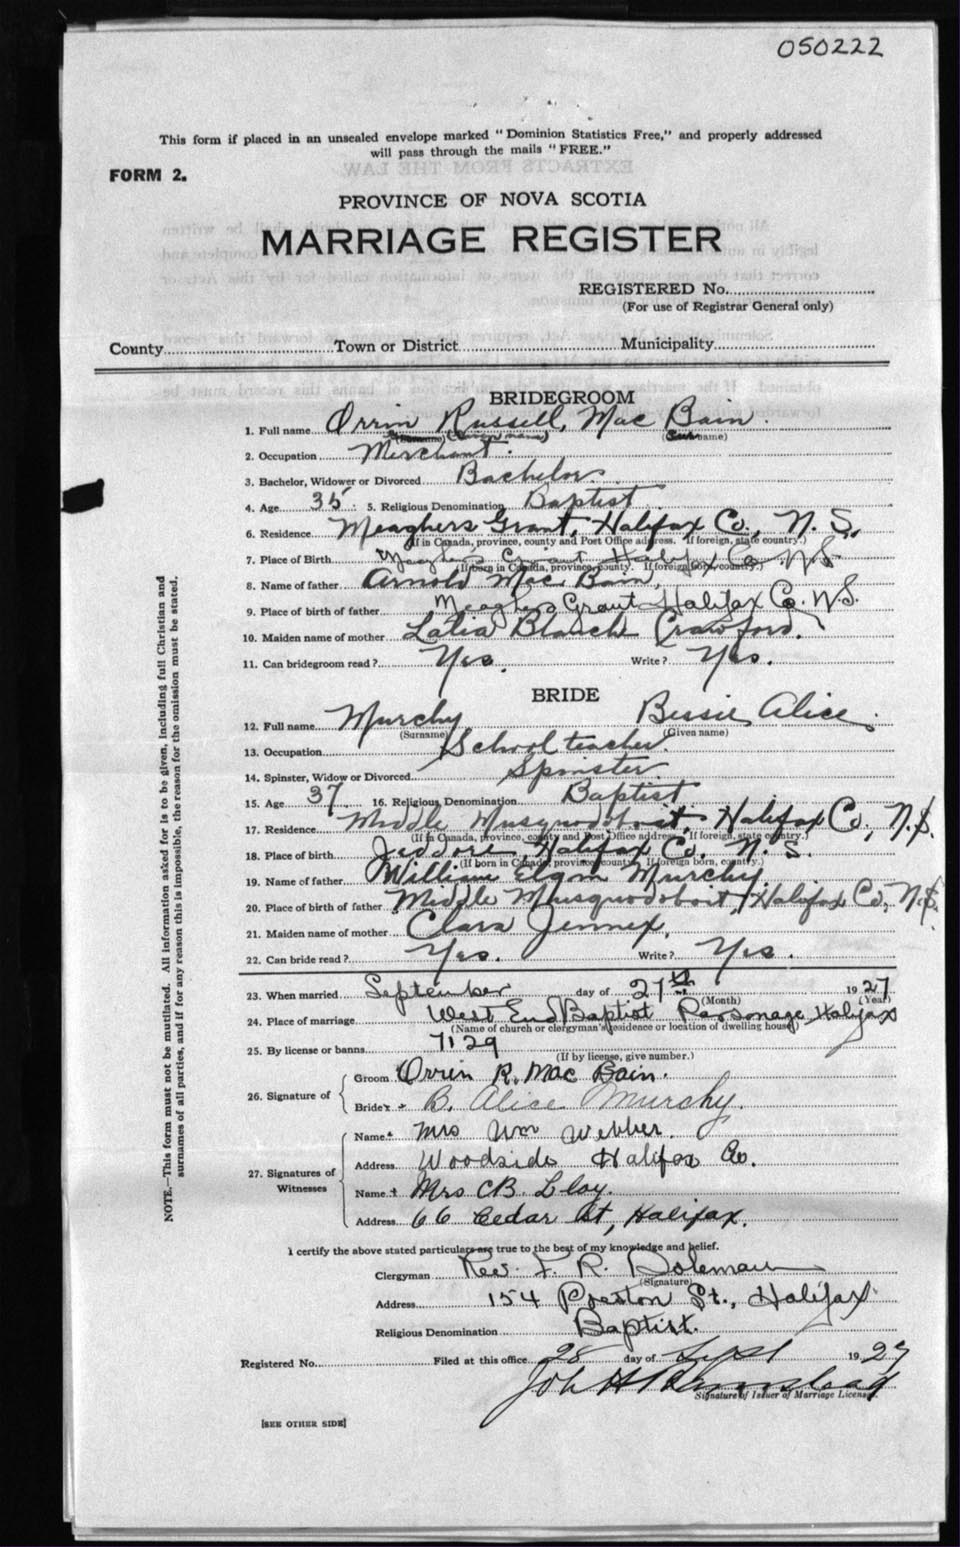 050222
This form if placed in an unsealed envelope marked "Dominion Statistics Free," and properly addressed
will pass through the mails "FREE."
FORM 2.
PROVINCE OF NOVA SCOTIA
MARRIAGE REGISTER
REGISTERED No.
(For use of Registrar General only)
County Town or District Municipality
BRIDEGROOM
1. Full name Orrin Russell, Mac Bain.
(Surname) (Given name) (Surname)
2. Occupation Merchant.
3. Bachelor, Widower or Divorced Bachelor
4. Age 35 5. Religious Denomination Baptist
6. Residence Meaghers Grant, Halifax Co., N.S.
(If in Canada, province, county and Post Office address. If foreign, state country.)
7. Place of Birth Meaghers Grant Halifax Co N.S.
(If born in Canada, province, county. If foreign born, country.)
8. Name of father Arnold Mac Bain,
9. Place of birth of father Meaghers Grant Halifax Co. N.S.
10. Maiden name of mother Blanch Crawford.
11. Can bridegroom read? Yes. Write? Yes.
BRIDE
12. Full name Murchy Bessie Alice.
(Surname) (Given name)
13. Occupation School teacher.
14. Spinster, Widow or Divorced Spinster
15. Age 37 16. Religious Denomination Baptist
17. Residence Middle Musquodoboit, Halifax Co, N.S.
(If in Canada, province, county and Post Office address. If foreign, state country.)
18. Place of birth Jeddore, Halifax Co. N.S.
(If born in Canada, province, county. If foreign born, country.)
19. Name of father William Elgin Murchy
20. Place of birth of father Middle Musquodoboit, Halifax Co, N.S.
21. Maiden name of mother Clara Jennex,
22. Can bride read? Yes. Write? Yes.
23. When married September day of 27th 1927
(Month) (Year)
24. Place of marriage West End Baptist Parsonage, Halifax
(Name of church or clergyman's residence or location of dwelling house)
25. By license or banns 7129
(If by license, give number.)
26. Signature of
Groom Orrin R. Mac Bain.
Bride B. Alice Murchy.
27. Signatures of Witnesses
Name Mrs Wm Webber.
Address Woodside Halifax Co.
Name Mrs CB Lloy.
Address 66 Cedar St, Halifax.
I certify the above stated particulars are true to the best of my knowledge and belief.
Clergyman Rev. F. R. Holeman
(Signature)
Address 154 Preston St., Halifax
Religious Denomination Baptist.
Registered No. Filed at this office 28 day of Sept 1927
Signature of Issuer of Marriage License.
[SEE OTHER SIDE]
NOTE.—This form must not be mutilated. All information asked for is to be given, including full Christian and
surnames of all parties, and if for any reason this is impossible, the reason for the omission must be stated.